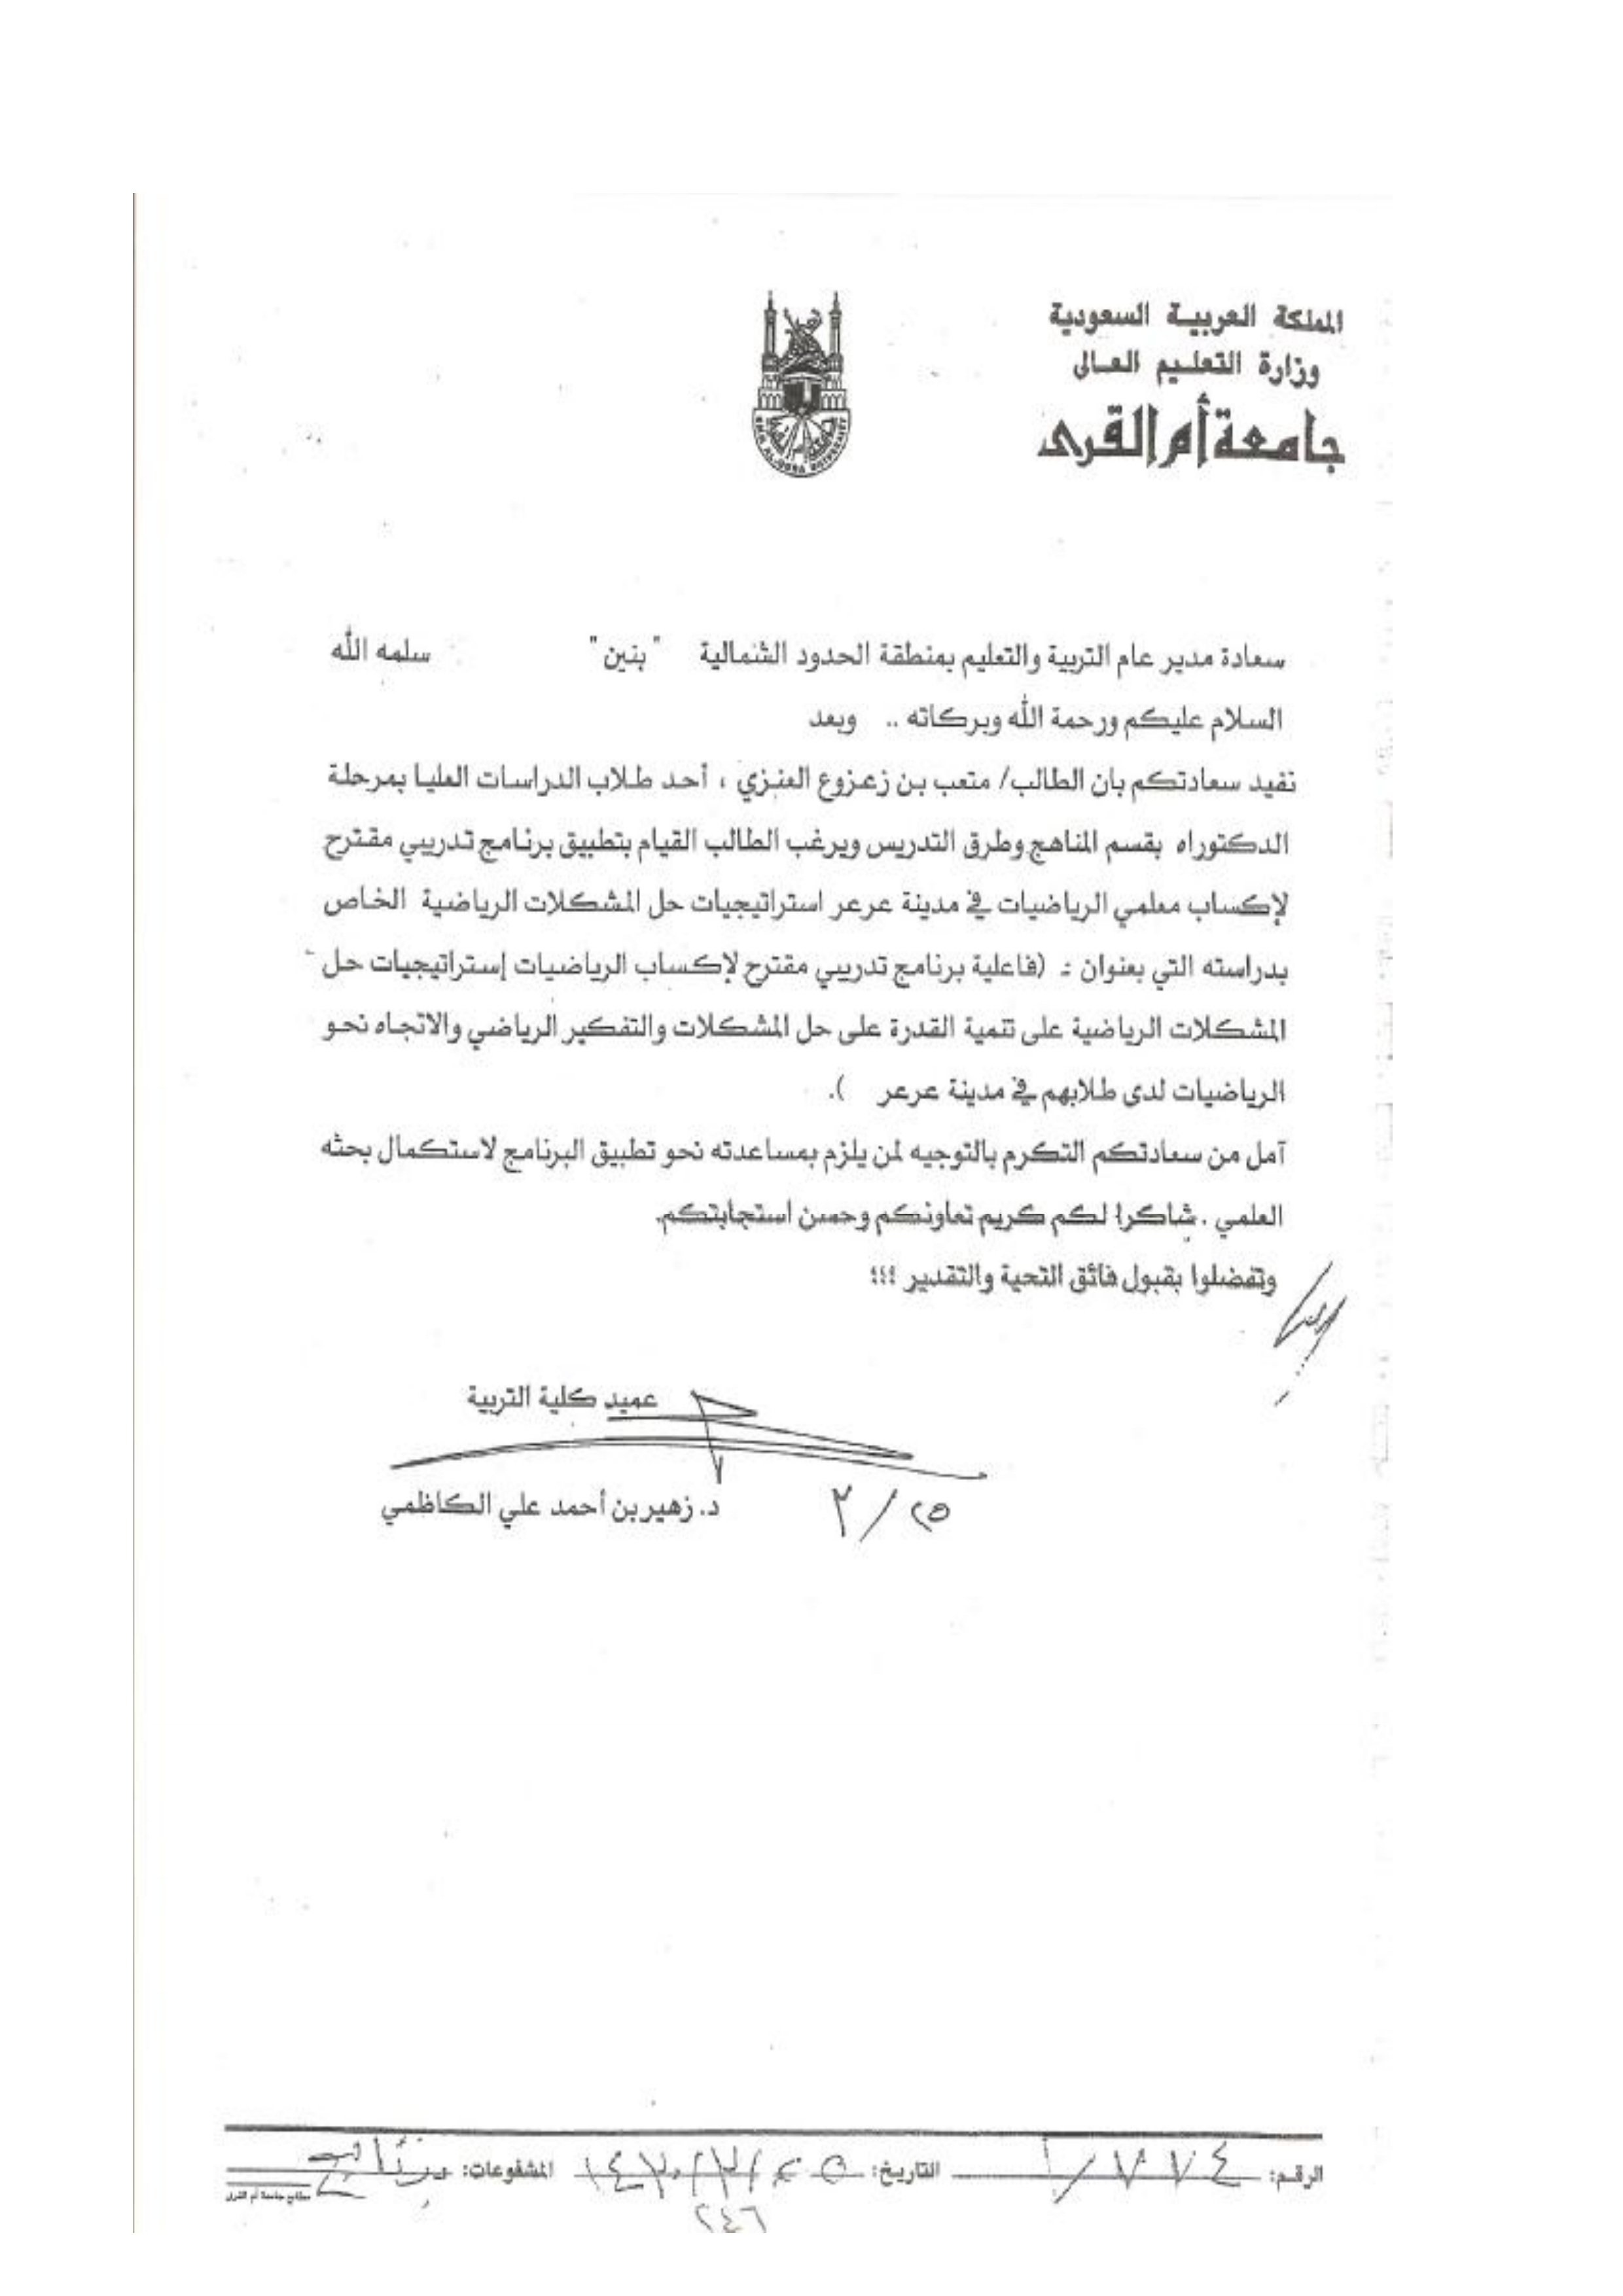 المملكة العربية السعودية
وزارة التعليم العالى
جامعة أم القرى
سعادة مدير عام التربية والتعليم بمنطقة الحدود الشمالية "بنين" سلمه الله
السلام عليكم ورحمة الله وبركاته .. وبعد
نفيد سعادتكم بان الطالب/ متعب بن زعزوع العنزي ، أحد طلاب الدراسات العليا بمرحلة
الدكتوراه بقسم المناهج وطرق التدريس ويرغب الطالب القيام بتطبيق برنامج تدريبي مقترح
لإكساب معلمي الرياضيات في مدينة عرعر استراتيجيات حل المشكلات الرياضية الخاص
بدراسته التي بعنوان :ـ (فاعلية برنامج تدريبي مقترح لإكساب الرياضيات إستراتيجيات حل
المشكلات الرياضية على تنمية القدرة على حل المشكلات والتفكير الرياضي والاتجاه نحو
الرياضيات لدى طلابهم في مدينة عرعر ).
آمل من سعادتكم التكرم بالتوجيه لمن يلزم بمساعدته نحو تطبيق البرنامج لاستكمال بحثه
العلمي . شاكرا لكم كريم تعاونكم وحسن استجابتكم.
وتفضلوا بقبول فائق التحية والتقدير ؛؛؛
عميد كلية التربية
د. زهير بن أحمد علي الكاظمي
٢٥/٣
الرقم: ٧٧٤/١ التاريخ: ٢٥/٣/١٤٣٠ المشفوعات: برنامج
مطابع جامعة أم القرى
٢٤٦